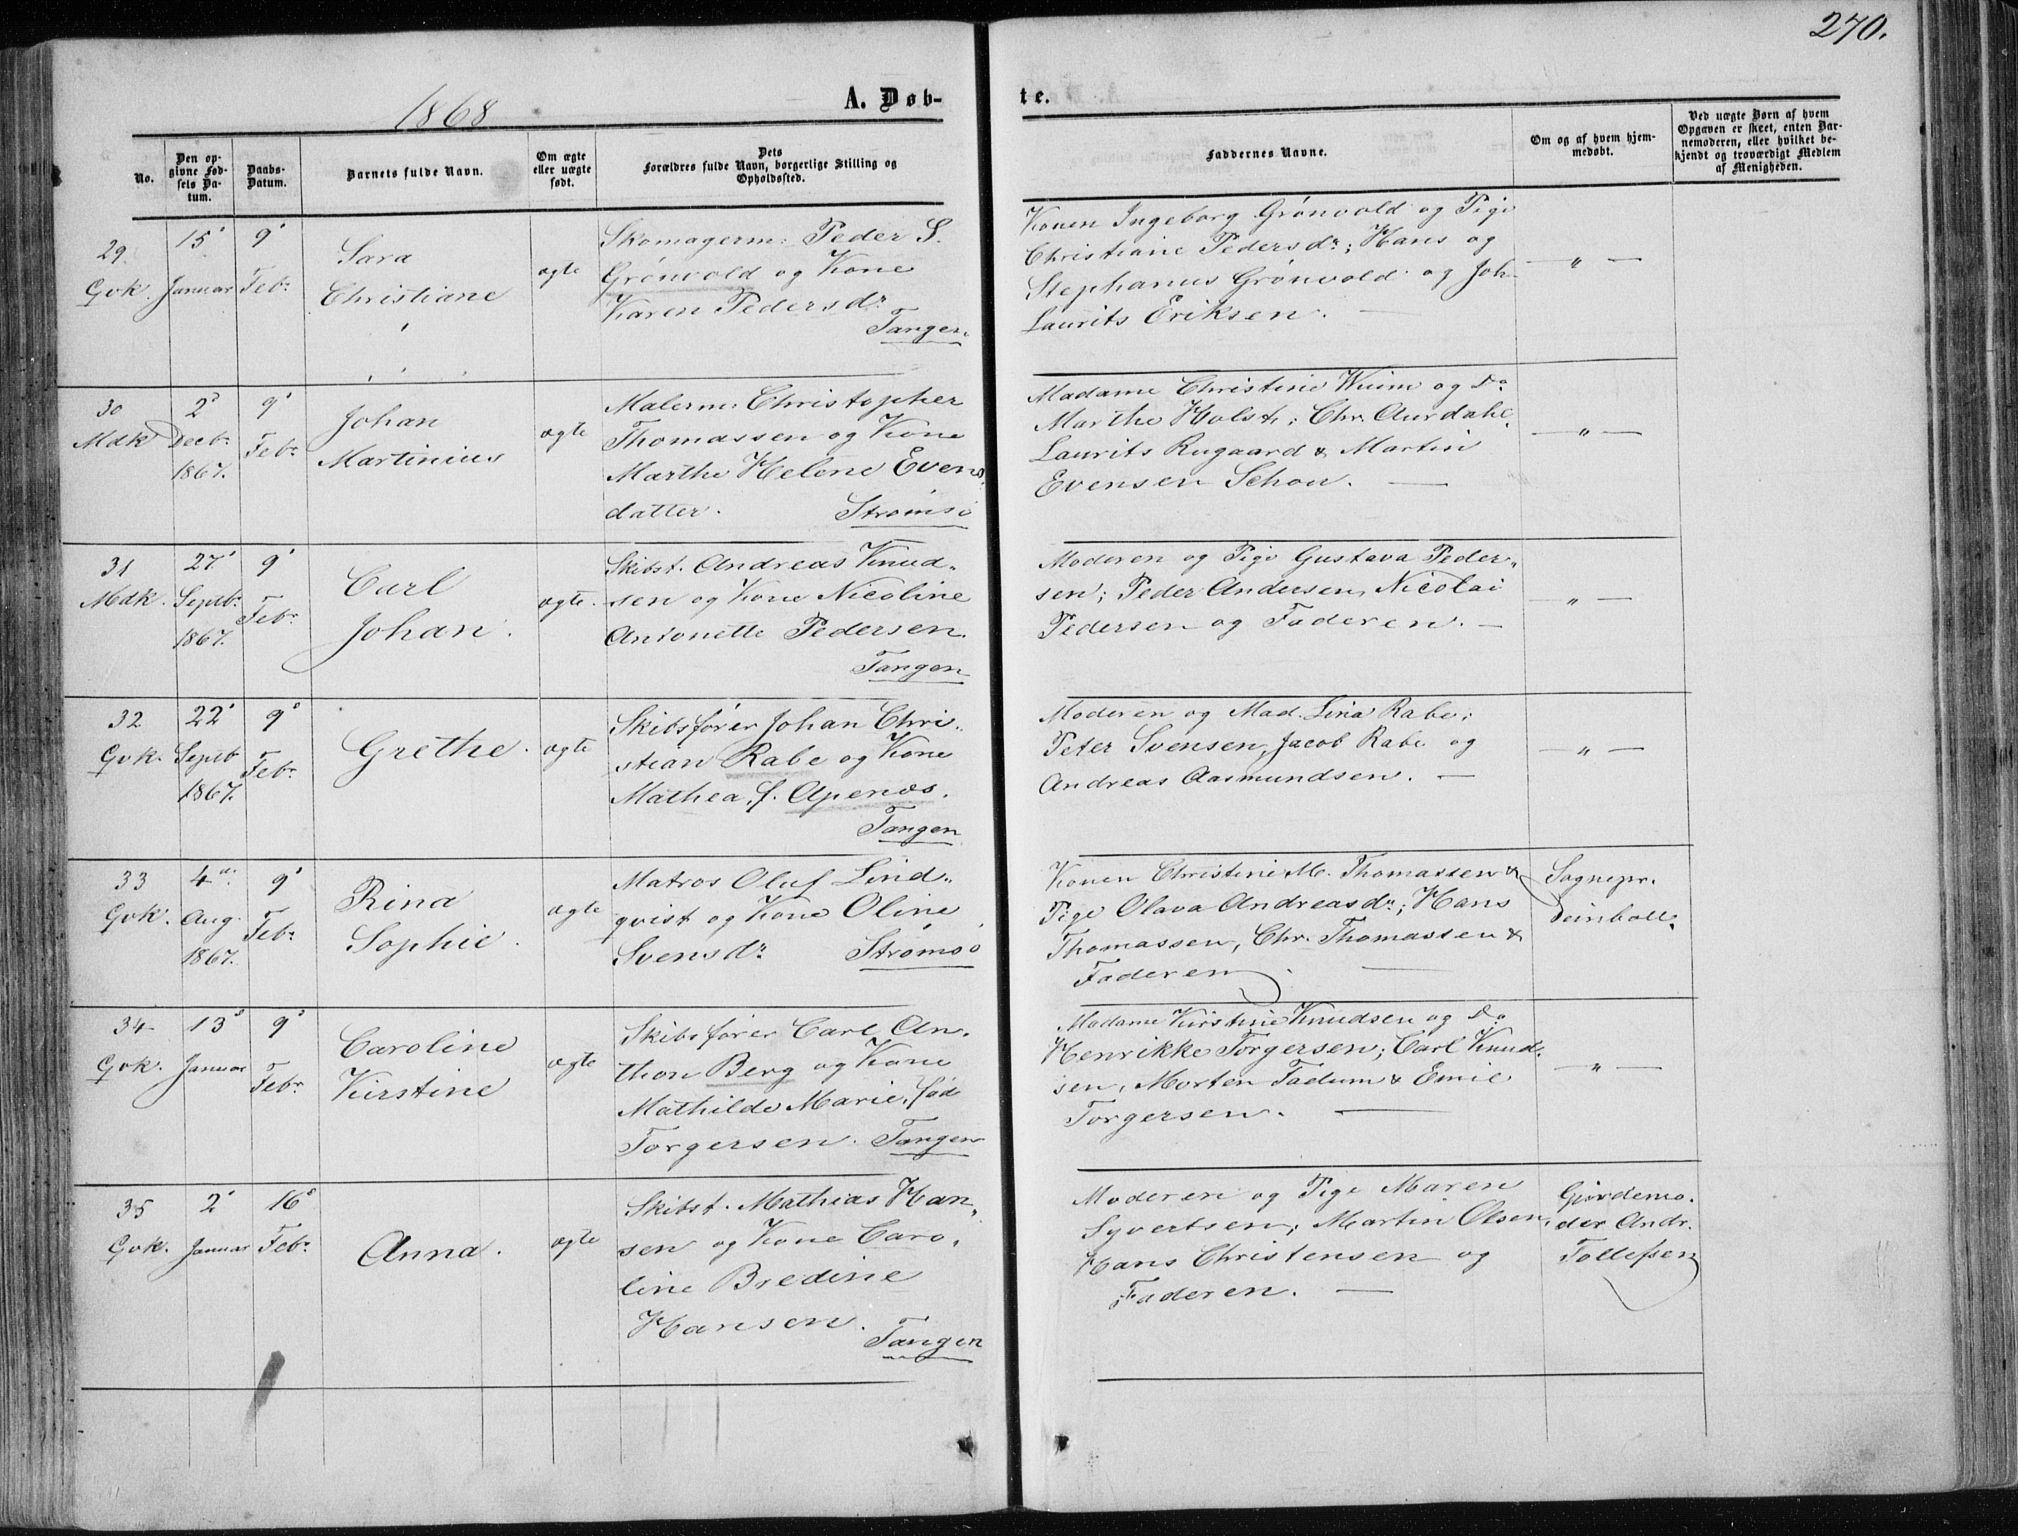 270.
1868
A. Døb-
te.
No.
Den op-
givne Fød-
sels Da-
tum.
Daabs-
Datum.
Barnets fulde Navn.
Om ægte
eller uægte
født.
Dets
Forældres fulde Navn, borgerlige Stilling og
Opholdssted.
Faddernes Navne.
Om og af hvem hjem-
medøbt.
Ved uægte Børn af hvem
Opgaven er skeet, enten Bar-
nemoderen, eller hvilket be-
kjendt og troværdigt Medlem
af Menigheden.
29.
Qvk.
15'
Januar
9'
Febr.
Sara
Christiane
ægte
Skomagerm: Peder S.
Grönvold og Kone
Karen Pedersdr.
Tangen
Konen Ingeborg Grönvold og Pige
Christiane Pedersdr; Hans og
Stephanus Grönvold og Joh.
Laurits Eriksen. —
— " —
30
Mdk
2'
Decbr.
1867.
9'
Febr.
Johan
Martinius
ægte
Malerm: Christopher
Thomassen og Kone
Marthe Helene Evens,
datter.
Strømsö
Madame Christine Wiim og Do
Marthe Holst; Chr. Aurdahl,
Laurits Rugaard & Martin
Evensen Schou. —
— " —
31
Mdk.
27'
Septbr.
1867.
9'
Febr.
Carl
Johan.
ægte.
Skibst. Andreas Knud-
sen og Kone Nicoline
Antonette Pedersen.
Tangen
Moderen og Pige Gustava Peder-
sen; Peder Andersen, Nicolai
Pedersen og Faderen. —
— " —
32
Qvk.
22'
Septb
1867.
9'
Febr.
Grethe.
ægte
Skibsfører Johan Chri-
stian Rabe og Kone
Mathea, f. Apenæs.
Tangen
Moderen og Mad. Lina Rabe;
Peter Svensen, Jacob Rabe og
Andreas Aasmundsen. —
— " —
33
Qvk.
4de
Aug.
1867.
9'
Febr.
Rina
Sophie.
ægte
Matros Oluf Lind-
qvist og Kone Oline
Svensdr.
Strömsö
Konen Christine M. Thomassen &
Pige Olava Andreasdr; Hans
Thomassen, Chr. Thomassen &
Faderen. —
Sognepr.
Deinboll.
34
Qvk.
13'
Januar
9'
Febr.
Caroline
Kirstine
ægte
Skibsfører Carl An-
thon Berg og Kone
Mathilde Marie, fød
Torgersen.
Tangen
Madame Kirstine Knudsen og Do
Henrikke Torgersen; Carl Knud-
sen, Morten Fadum & Emil
Torgersen. —
— " —
35
Qvk.
2'
Januar
16'
Febr.
Anna.
ægte
Skibst. Mathias Han-
sen og Kone Caro-
line Bredine
Hansen.
Tangen
Moderen og Pige Maren
Syvertsen; Martin Olsen,
Hans Christensen og
Faderen. —
Gjordemo.
der Andr.
Tollefsen